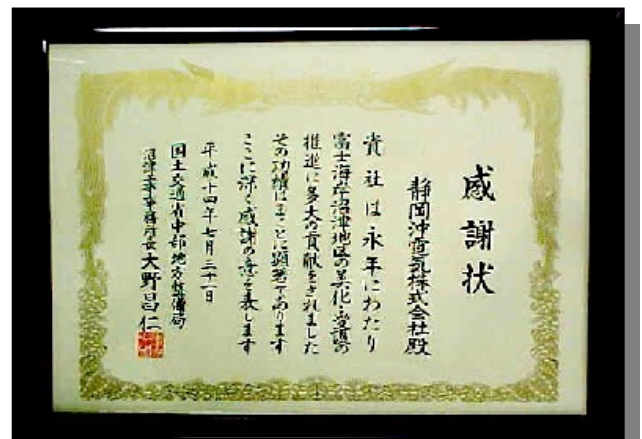 感謝状
静岡沖電気株式会社殿
貴社は永年にわたり
富士海岸沼津地区の美化・愛護の
推進に多大の貢献をされました
その功績はまことに顕著であります
ここに深く感謝の意を表します
平成十四年七月三十一日
国土交通省中部地方整備局
沼津工事事務所長 大野昌仁